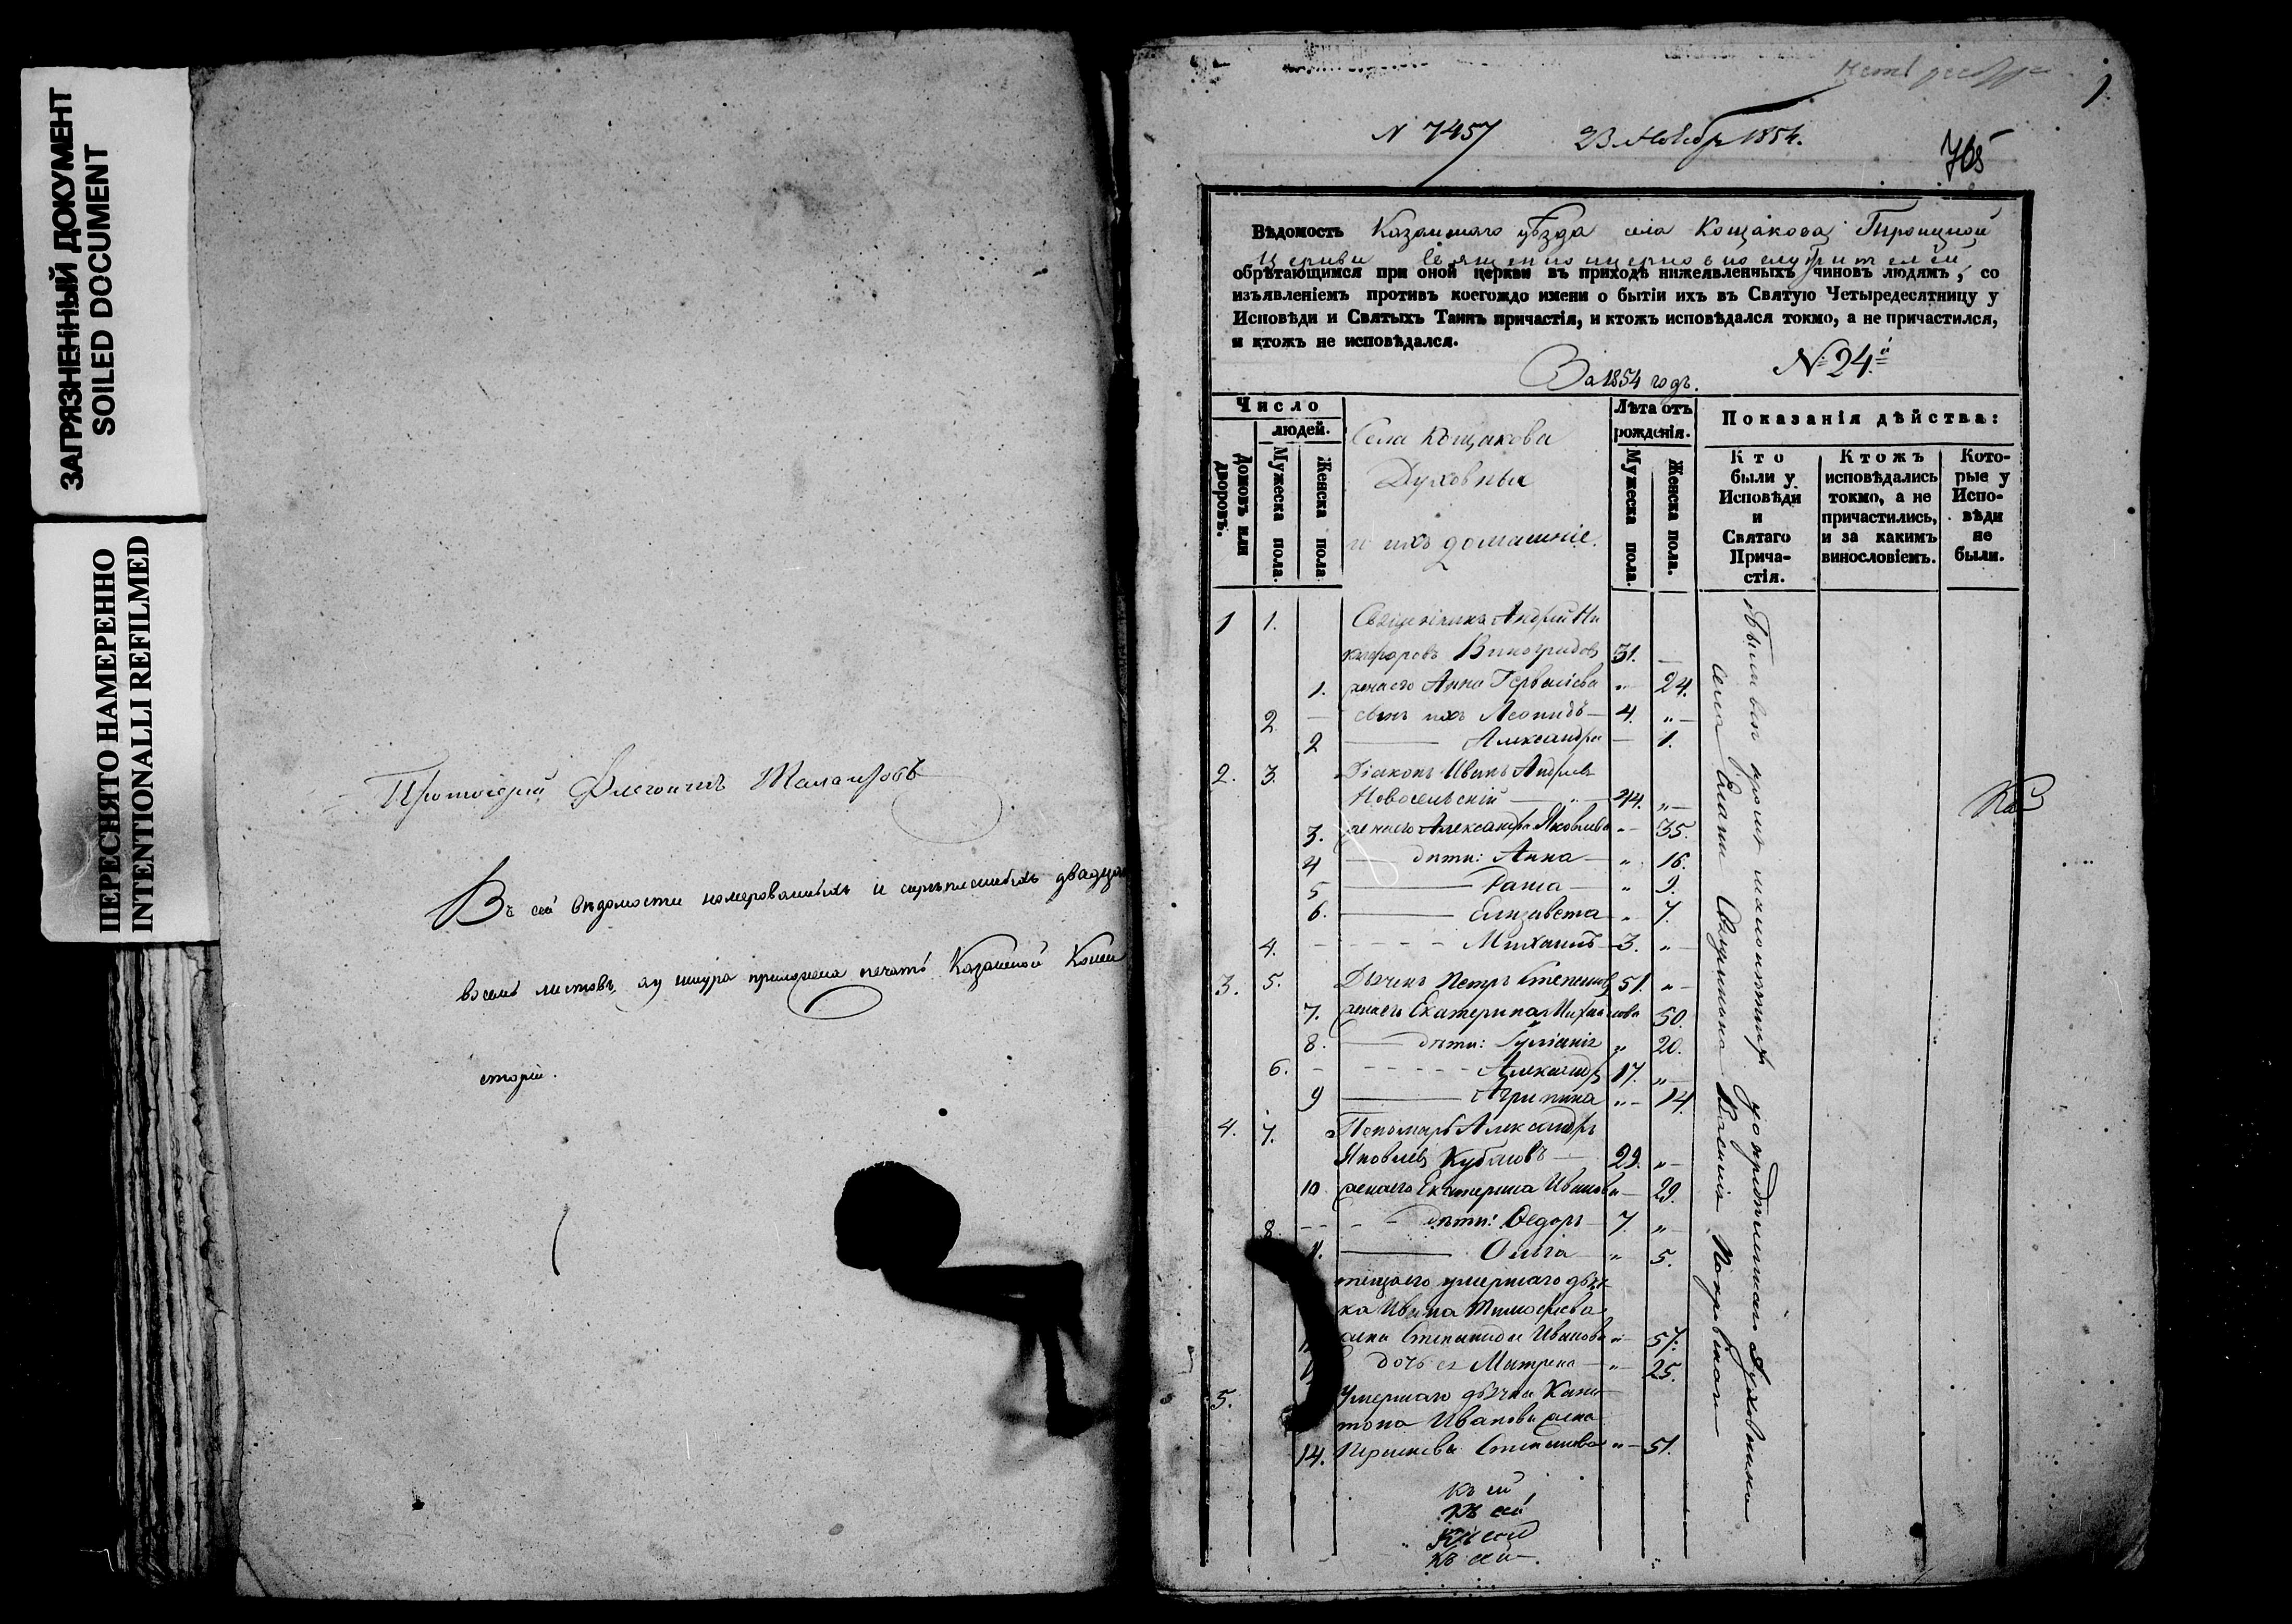 ЗАГРЯЗНЕННЫЙ ДОКУМЕНТ
SOILED DOCUMENT
ПЕРЕСНЯТО НАМЕРЕННО
INTENTIONALLI REFILMED
Протоіерей
Въ сей вѣдомости номерованныхъ и скрѣпленныхъ двадца
восемь листовъ, ку шнура приложена печать Казанской Конси
сторіи.
1.
N 7457 23 Ноябр 1854.
765
Вѣдомость Казанскаго уѣзда села Кощакова Троицкой
Церкви Священноцерковнослужителей
обрѣтающимся при оной церкви въ приходѣ нижеявленныхъ чиновъ людямъ, со
изъявленіемъ противъ коегождо имени о бытіи ихъ въ Святую Четыредесятницу у
Исповѣди и Святыхъ Таинъ причастія, и ктожъ исповѣдался токмо, а не причастился,
и ктожъ не исповѣдался.
№ 24й
За 1854 годъ.
Число
людей.
Домовъ или дворовъ.
Мужеска пола.
Женска пола
Села Кощакова
Духовные
и ихъ домашніе.
Лѣта отъ рожденія.
Мужеска пола.
Женска пола.
Показанія дѣйства:
Кто были у Исповѣди и Святаго Причастія.
Ктожъ исповѣдались токмо, а не причастились, и за какимъ винословіемъ.
Которые у Исповѣди не были.
1 1. Священникъ Андрей Ни
кифоровъ Виноградовъ 31. —
1. жена его Анна Гервасіева " 24.
2 — сынъ ихъ Леонидъ — 4. " —
2 — Александра — 1.
2. 3. Діаконъ Иванъ Андреевъ
Новосельскій — 44. " —
3. жена его Александра Яковлева " 35.
4 — дѣти: Анна — " 16.
5 — Раиса — " 9.
6. — Елизавета — " 7.
4. — Михаилъ — 3. " —
3. 5. Дьячекъ Петръ Степановъ 51. " —
7. жена его Екатерина Михайлова 50.
8. — дѣти: Іуліанія " 20.
6. — Александръ 17. " —
9 — Агрипина " — 14
4. 7. Пономарь Александръ
Яковлевъ — 29. " —
10 жена его Екатерина Иванова — 29.
8. — дѣти: Ѳедоръ — 7. " —
— Ольга — " 5.
теща его умершаго дьяч
ка Ивана Тимофеева
жена Степанида Иванова " — 57.
дочь ея Матрена — " 25.
5. Умершаго дьячка Капи
тона Иванова жена
14. Степанова " — 51.
къ сей
къ сей
къ сей
къ сей
Были вси кромѣ малолѣтнихъ
села Священника